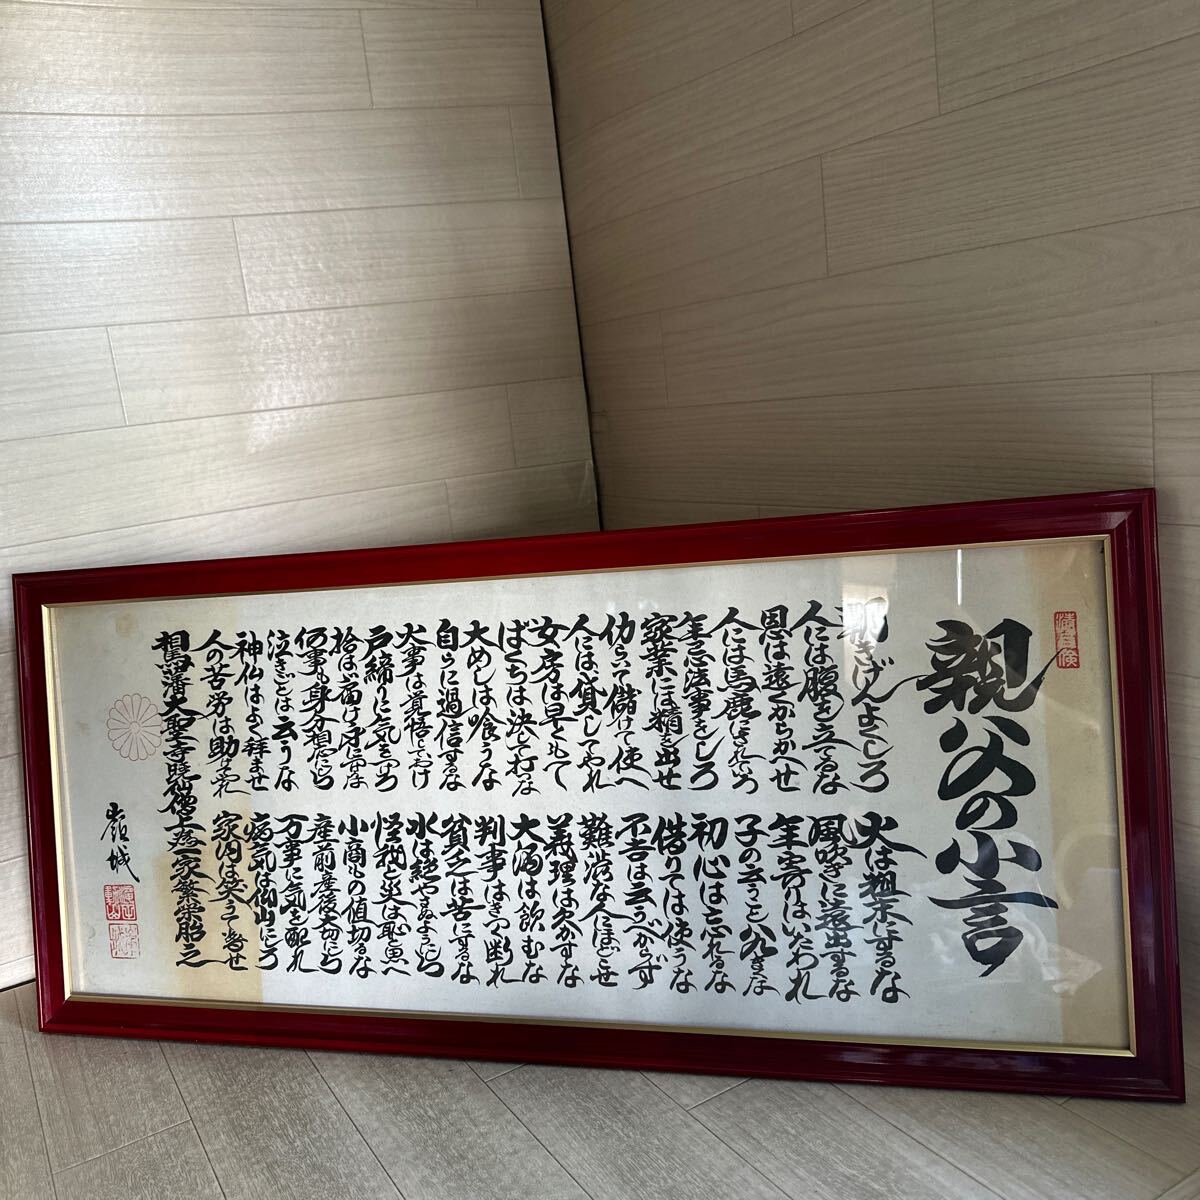 親父の小言
朝きげんよくしろ
火は粗末にするな
人には腹を立てるな
風吹きに遠出するな
恩は遠くからかへせ
年寄りはいたわれ
人には馬鹿にされていろ
子の云うこと八九きくな
年忌法事をしろ
初心は忘れるな
家業には精を出せ
借りては使うな
仂らいて儲けて使へ
不吉は云うべからず
人には貸してやれ
難渋な人にほどこせ
女房は早くもて
義理は欠かすな
ばくちは決して打つな
大酒は飲むな
大めしは喰うな
判事はきつく断れ
自らに過信するな
貧乏は苦にするな
火事は覚悟しておけ
水は絶やさぬようにしろ
戸締りに気をつけろ
怪我と災は恥と思へ
拾はば届け身につけるな
小商もの値切るな
何事も身分相応にしろ
産前産後大切にしろ
泣きごとは云うな
万事に気を配れ
神仏はよく拝ませ
病気は仰山にしろ
人の苦労は助けてやれ
家内は笑うて暮せ
相馬藩大聖寺暁仙僧正
家繁栄
嶺城